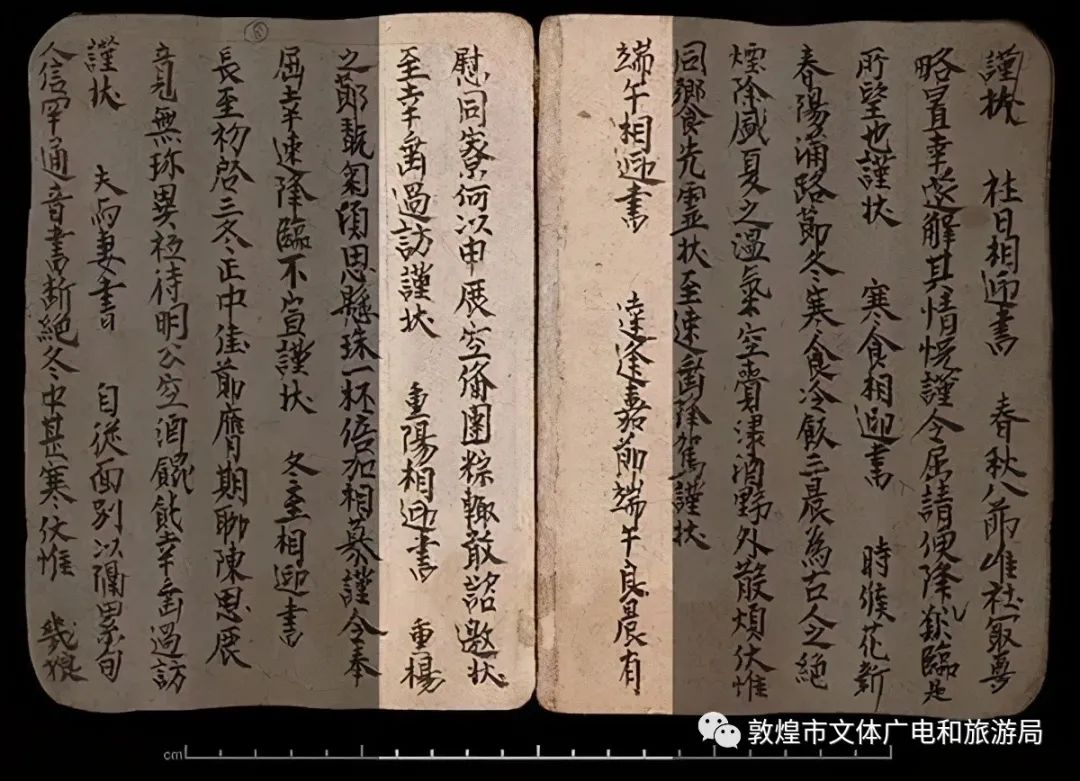 謹狀 社日相迎書 春秋八節唯社寂尊
略置幸邀解其情慌謹令屈請便降臨是
所望也謹狀 寒食相迎書 時候花新
春陽滿路節冬寒食冷飲三晨為古人之絕
煙除盛夏之溫氣空賷淥酒野外散煩伏惟
同饗先靈狀至速垂降駕謹狀
端午相迎書 達途嘉節端午良晨有
慰同寮何以申展空俻團粽輙敢諮邀狀
至幸垂過訪謹狀 重陽相迎書 重楊
之節翫菊傾思懸珠一杯倍加相慕謹令奉
屈幸速降臨不宣謹狀 冬至相迎書
長至初啓三冬正中佳節膺期聊陳思展
竟無珎異秪待明公空酒餛飩幸垂過訪
謹狀 夫与妻書 自從面別以隔累旬
人信罕通音書斷絕冬中甚寒伏惟 幾娘
⑧
cm
敦煌市文体广电和旅游局